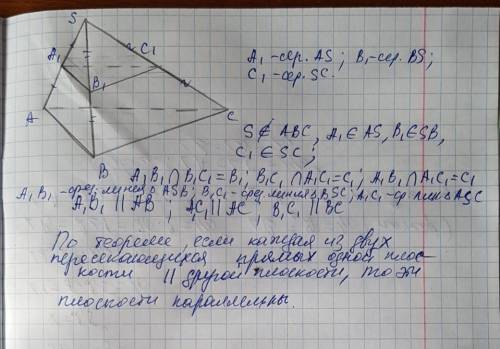 S
A₁
C₁
B₁
A
C
B
A₁ -сер. AS; B₁ -сер. BS;
C₁ -сер. SC.
S ∉ ABC, A₁ ∈ AS, B₁ ∈ SB,
C₁ ∈ SC;
A₁B₁ ∩ B₁C₁ = B₁; B₁C₁ ∩ A₁C₁ = C₁; A₁B₁ ∩ A₁C₁ = C₁
A₁B₁ - сред. линия в ASB; B₁C₁ - сред. линия в BSC; A₁C₁ - ср. лин в ASC
A₁B₁ || AB; A₁C₁ || AC; B₁C₁ || BC
По теореме, если каждая из двух
пересекающихся прямых одной плос-
кости || другой плоскости, то эти
плоскости параллельны.